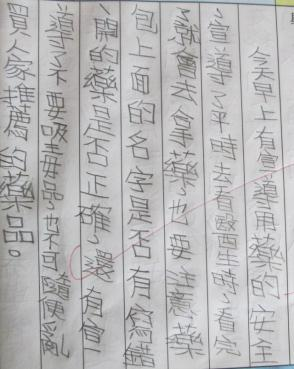 今天早上有宣導用藥的安全
,宣導了平時去看醫生時,看完
,就會去拿藥,也要注意藥
包上面的名字是否有寫錯
,開的藥是否正確,還有宣
導了不要吸毒品,也不可隨便亂
買人家推薦的藥品。